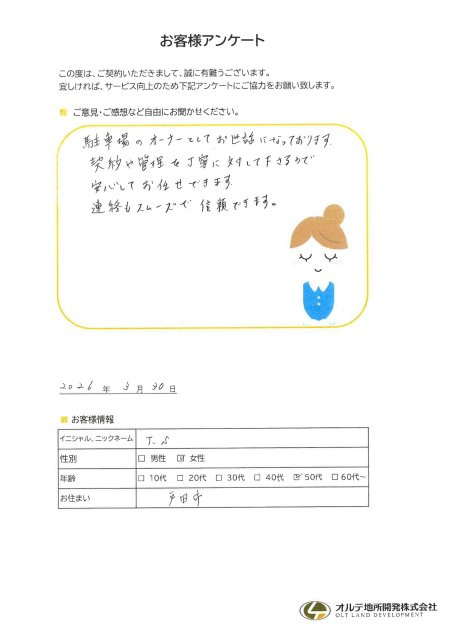 お客様アンケート
この度は、ご契約いただきまして、誠に有難うございます。
宜しければ、サービス向上のため下記アンケートにご協力をお願い致します。
ご意見・ご感想など自由にお聞かせください。
駐車場のオーナーとしてお世話になっております。
契約や管理を丁寧に対して下さるので
安心してお任せできます。
連絡もスムーズで信頼できます。
2026 年 3 月 30 日
お客様情報
イニシャル、ニックネーム T.S
性別 □ 男性 ☑ 女性
年齢 □ 10代 □ 20代 □ 30代 □ 40代 ☑ 50代 □ 60代～
お住まい 戸田市
オルテ地所開発株式会社
OLT LAND DEVELOPMENT